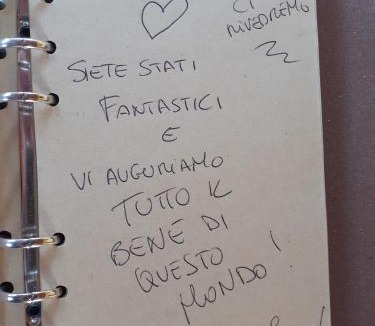 CI
RIVEDREMO
SIETE STATI
FANTASTICI
E
VI AUGURIAMO
TUTTO IL
BENE DI
QUESTO
MONDO!